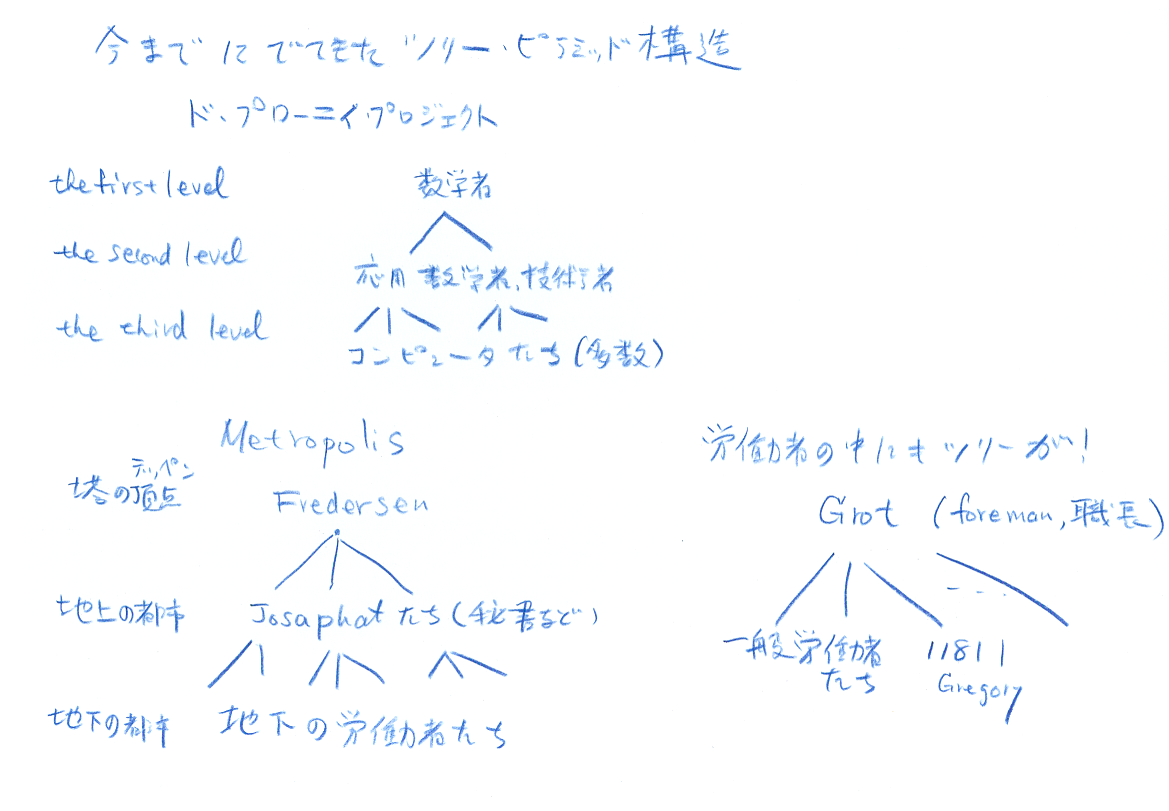 今までにでてきたツリー・ピラミッド構造
ド・プローニイ・プロジェクト
the first level 数学者
the second level
応用数学者、技術者
the third level
コンピュータたち(多数)
Metropolis
テッペン
塔の頂点 Fredersen
地上の都市 Josaphatたち(秘書など)
地下の都市 地下の労働者たち
労働者の中にもツリーが!
Grot (foreman, 職長)
一般労働者たち 11811
Gregory